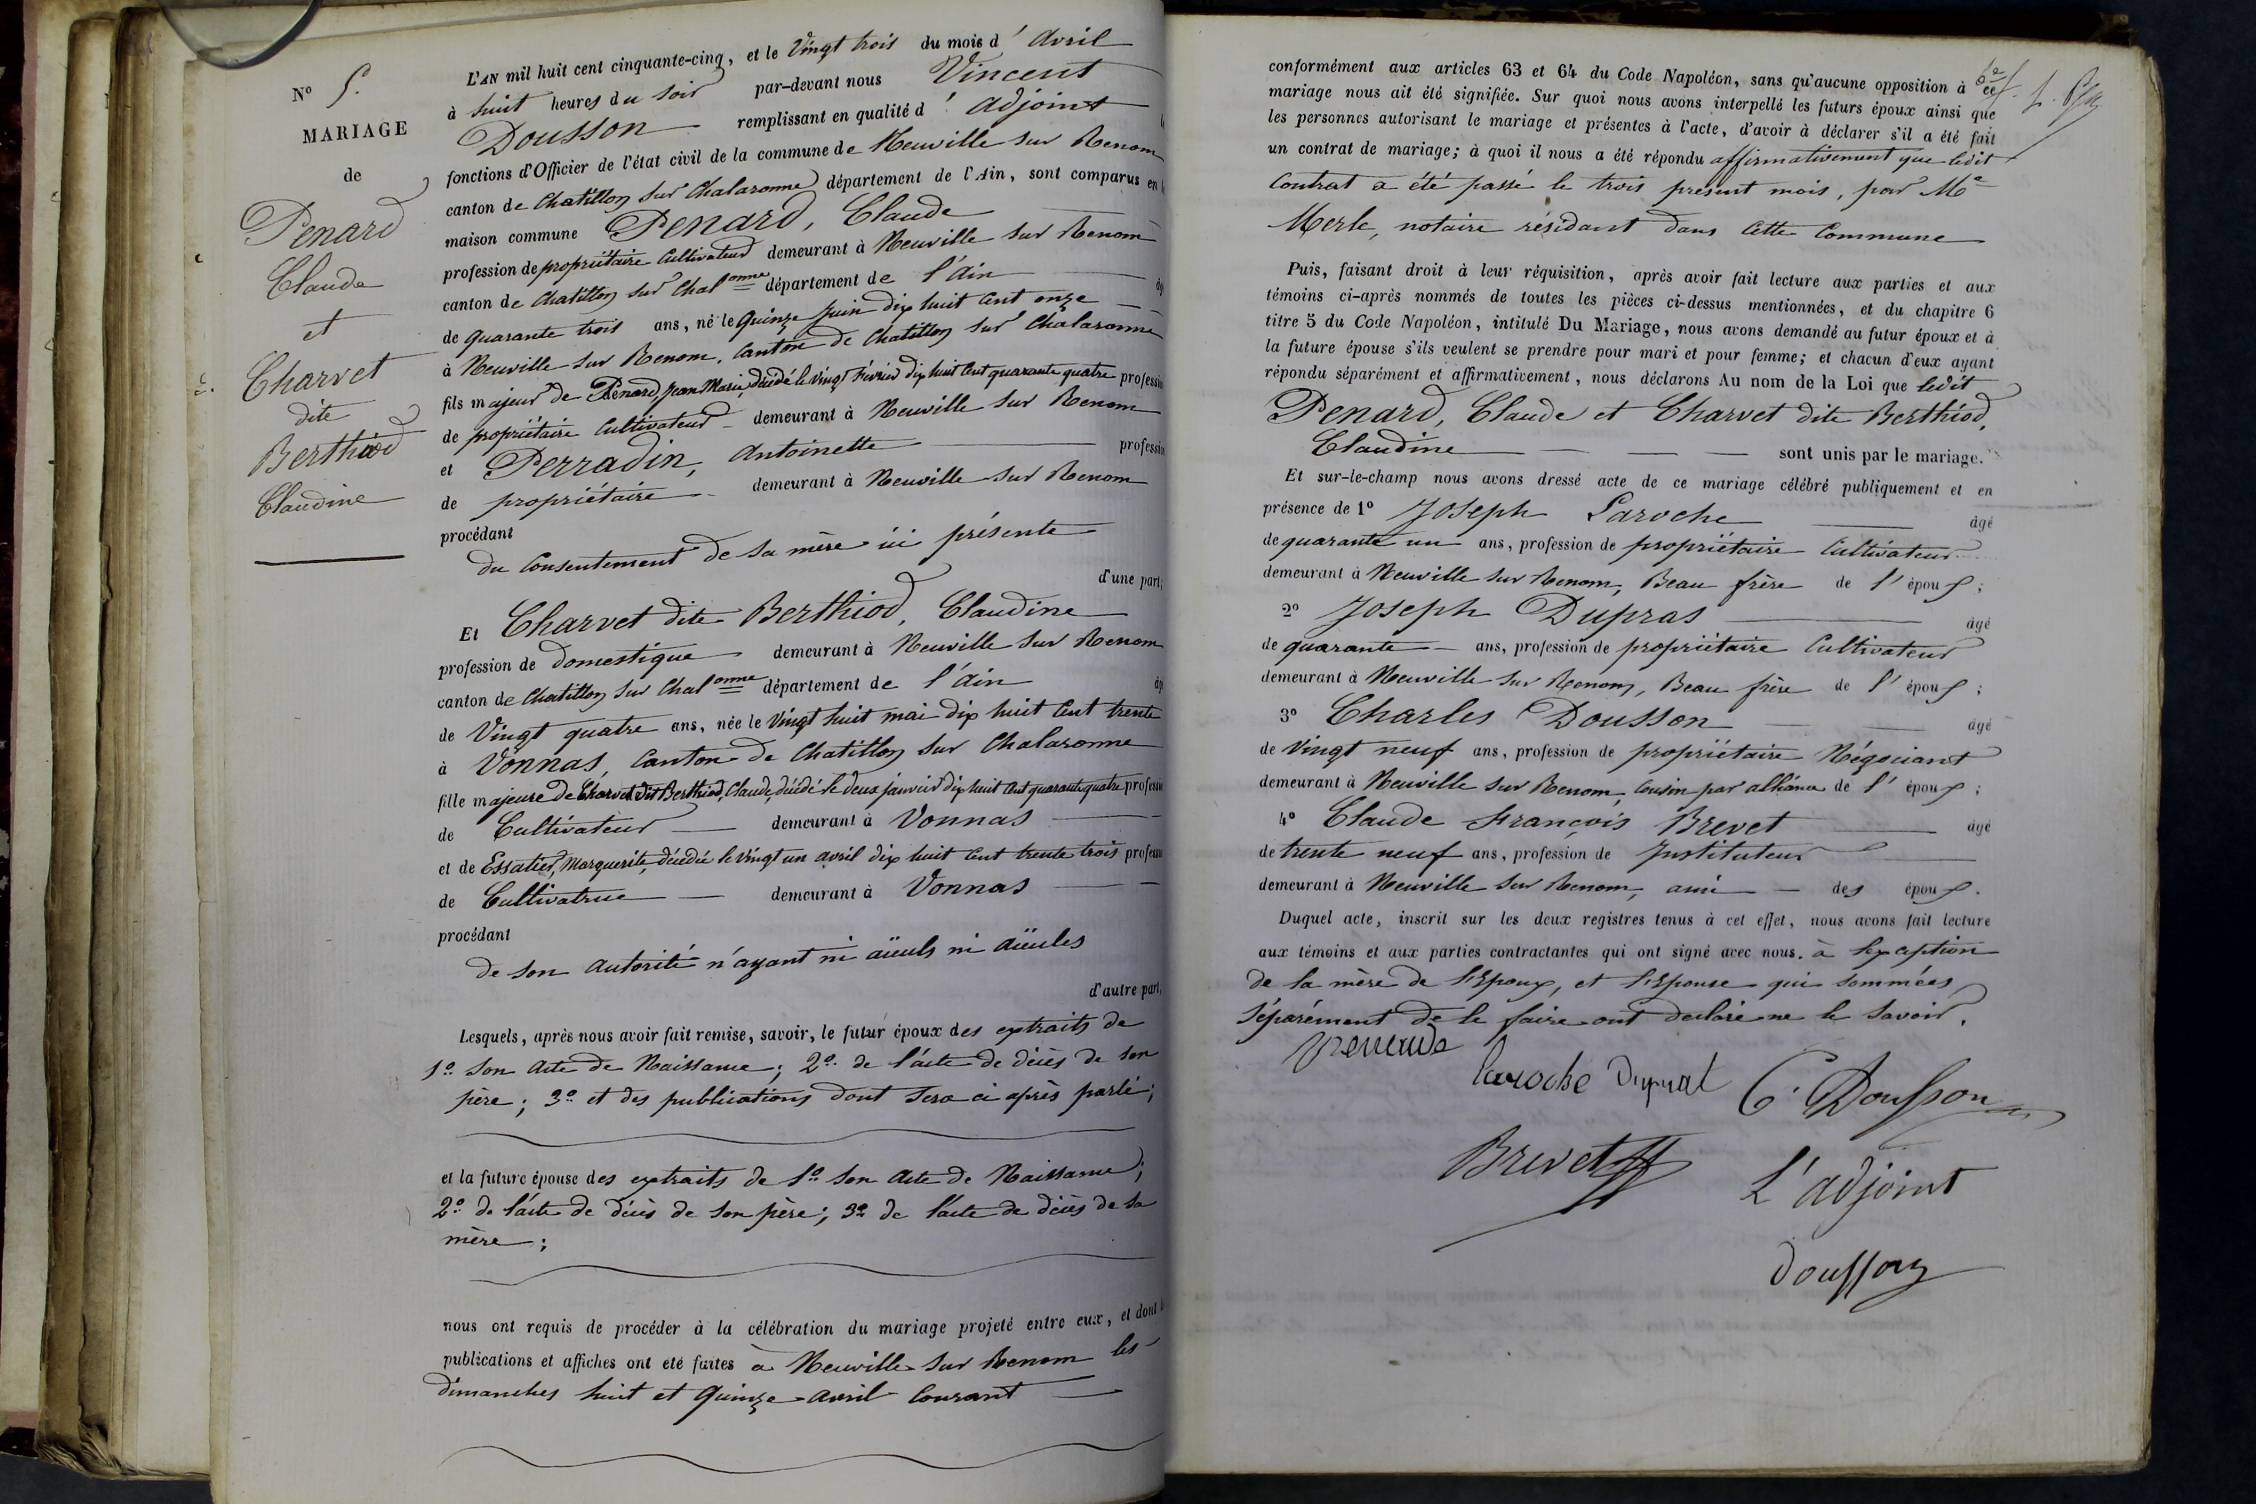 N° 5.
MARIAGE
de
Penard
Claude
et
Charvet
dite
Berthiod
Claudine
L'AN mil huit cent cinquante-cinq, et le Vingt trois du mois d' Avril
à huit heures du soir par-devant nous Vincent
Dousson remplissant en qualité d' adjoint
fonctions d'Officier de l'état civil de la commune de Neuville sur Renom
canton de Chatillon sur Chalaronne département de l'Ain, sont comparus en
maison commune Penard, Claude
profession de propriétaire Cultivateur demeurant à Neuville sur Renom
canton de Chatillon sur Chalonne département de l'ain
de quarante trois ans, né le quinze juin dix huit cent onze
à Neuville sur Renom, canton de Chatillon sur Chalaronne
fils majeur de Penard, Jean Marie, décédé le vingt Février dix huit cent quarante quatre profession
de propriétaire Cultivateur demeurant à Neuville sur Renom
et Perradin, Antoinette profession
de propriétaire demeurant à Neuville sur Renom
procédant
du consentement de sa mère ici présente
d'une part;
Et Charvet dite Berthiod, Claudine
profession de domestique demeurant à Neuville sur Renom
canton de Chatillon sur Chalonne département de l'ain
de Vingt quatre ans, née le Vingt huit mai dix huit cent trente
à Vonnas, Canton de Chatillon sur Chalaronne
fille majeure de Charvet dit Berthiod, Claude, décédé le deux janvier dix huit cent quarante quatre profession
de Cultivateur demeurant à Vonnas
et de Essatier, Marguerite, décédée le vingt un avril dix huit cent trente trois profession
de Cultivatrice demeurant à Vonnas
procédant
de son autorité n'ayant ni aïeuls ni aïeules
d'autre part,
Lesquels, après nous avoir fait remise, savoir, le futur époux des extraits de
1° son acte de Naissance; 2° de l'acte de décès de son
père; 3° et des publications dont sera ci après parlé;
et la future épouse des extraits de 1° son acte de Naissance;
2° de l'acte de décès de son père; 3° de l'acte de décès de sa
mère;
nous ont requis de procéder à la célébration du mariage projeté entre eux, et dont
publications et affiches ont été faites à Neuville sur Renom les
dimanches huit et quinze avril courant
conformément aux articles 63 et 64 du Code Napoléon, sans qu'aucune opposition à ce
mariage nous ait été signifiée. Sur quoi nous avons interpellé les futurs époux ainsi que
les personnes autorisant le mariage et présentes à l'acte, d'avoir à déclarer s'il a été fait
un contrat de mariage; à quoi il nous a été répondu affirmativement que ledit
contrat a été passé le trois présent mois, par Me
Merle, notaire résidant dans cette Commune
Puis, faisant droit à leur réquisition, après avoir fait lecture aux parties et aux
témoins ci-après nommés de toutes les pièces ci-dessus mentionnées, et du chapitre 6
titre 5 du Code Napoléon, intitulé Du Mariage, nous avons demandé au futur époux et à
la future épouse s'ils veulent se prendre pour mari et pour femme; et chacun d'eux ayant
répondu séparément et affirmativement, nous déclarons Au nom de la Loi que ledit
Penard, Claude et Charvet dite Berthiod,
Claudine sont unis par le mariage.
Et sur-le-champ nous avons dressé acte de ce mariage célébré publiquement et en
présence de 1° Joseph Laroche âgé
de quarante un ans, profession de propriétaire Cultivateur
demeurant à Neuville sur Renom, Beau frère de l'époux;
2° Joseph Dupras âgé
de quarante ans, profession de propriétaire Cultivateur
demeurant à Neuville sur Renom, Beau frère de l'époux;
3° Charles Dousson âgé
de Vingt neuf ans, profession de propriétaire Négociant
demeurant à Neuville sur Renom, cousin par alliance de l'époux;
4° Claude François Brevet âgé
de trente neuf ans, profession de Instituteur
demeurant à Neuville sur Renom, ami des époux.
Duquel acte, inscrit sur les deux registres tenus à cet effet, nous avons fait lecture
aux témoins et aux parties contractantes qui ont signé avec nous. à l'exception
de la mère de l'Epoux, et l'Epouse qui sommées
séparément de le faire ont déclaré ne le savoir.
laroche Duprat C. Dousson
Brevet
L'adjoint
Dousson